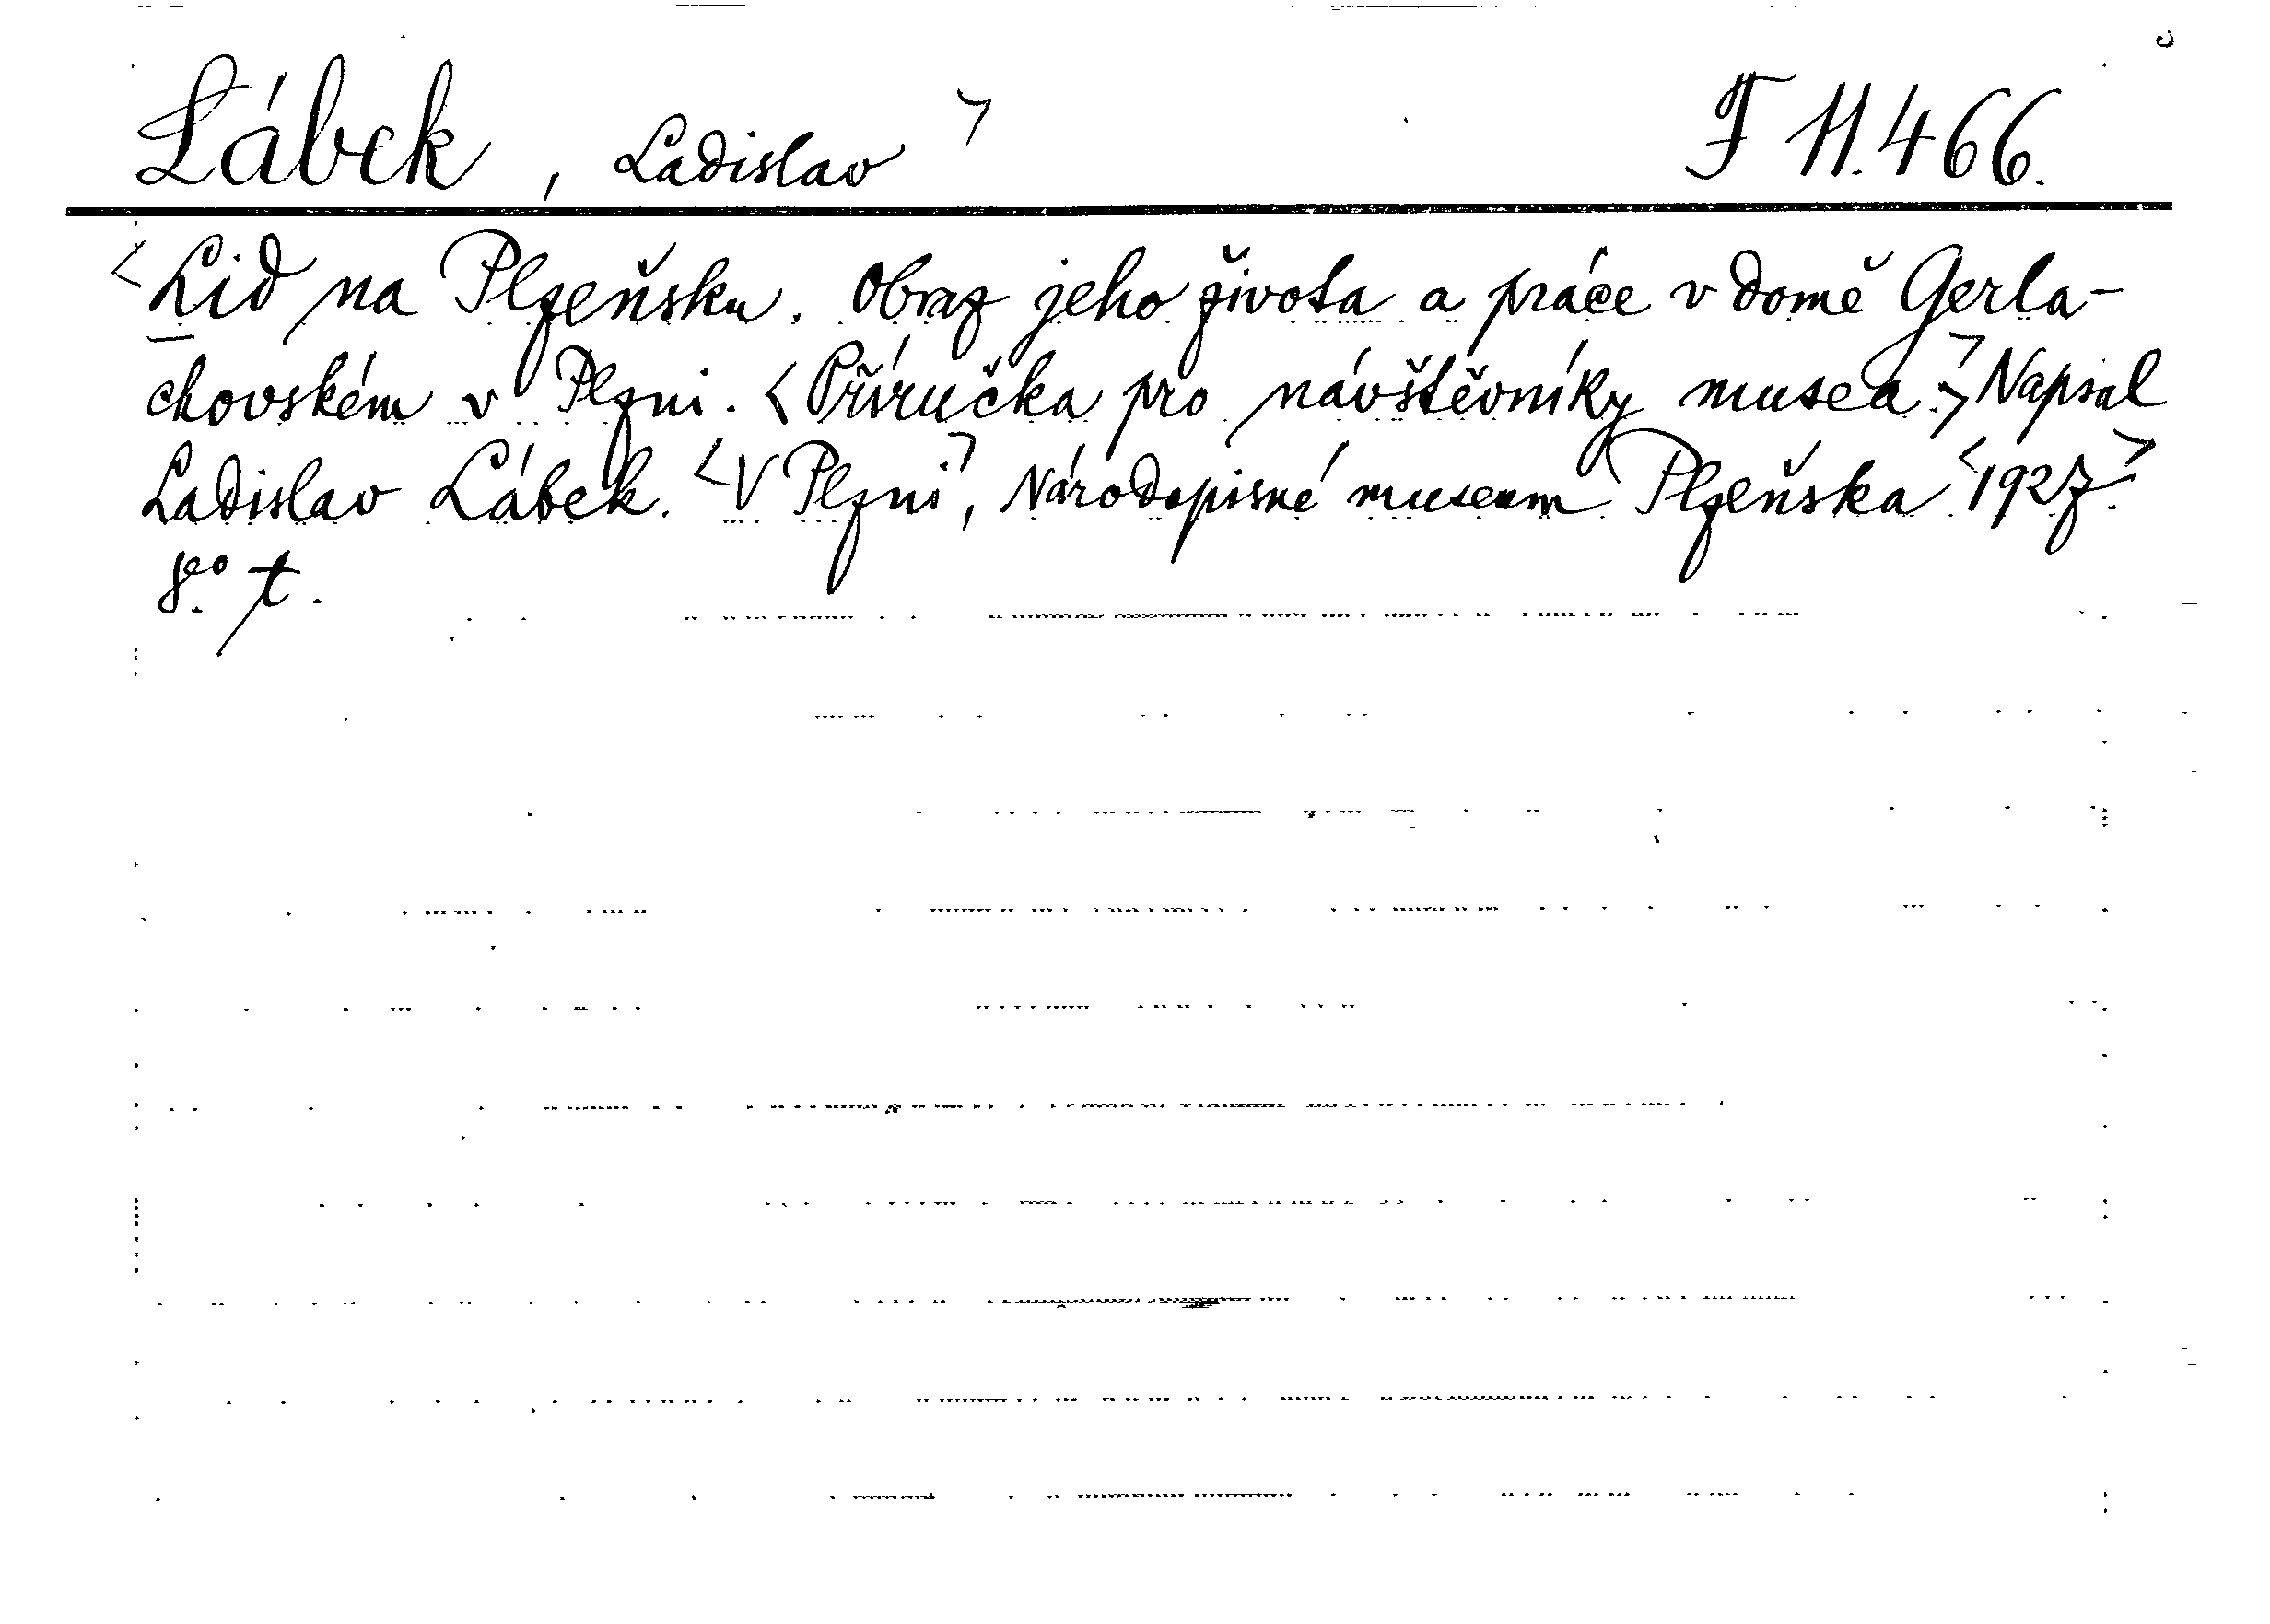 Lábek, Ladislav > F 11.466.
<Lid na Plzeňsku. Obraz jeho života a práce v domě Gerla-
chovském v Plzni. <Příručka pro návštěvníky musea.>> Napsal
Ladislav Lábek. <V Plzni>, Národopisné museum Plzeňska <1927.>
8º t.